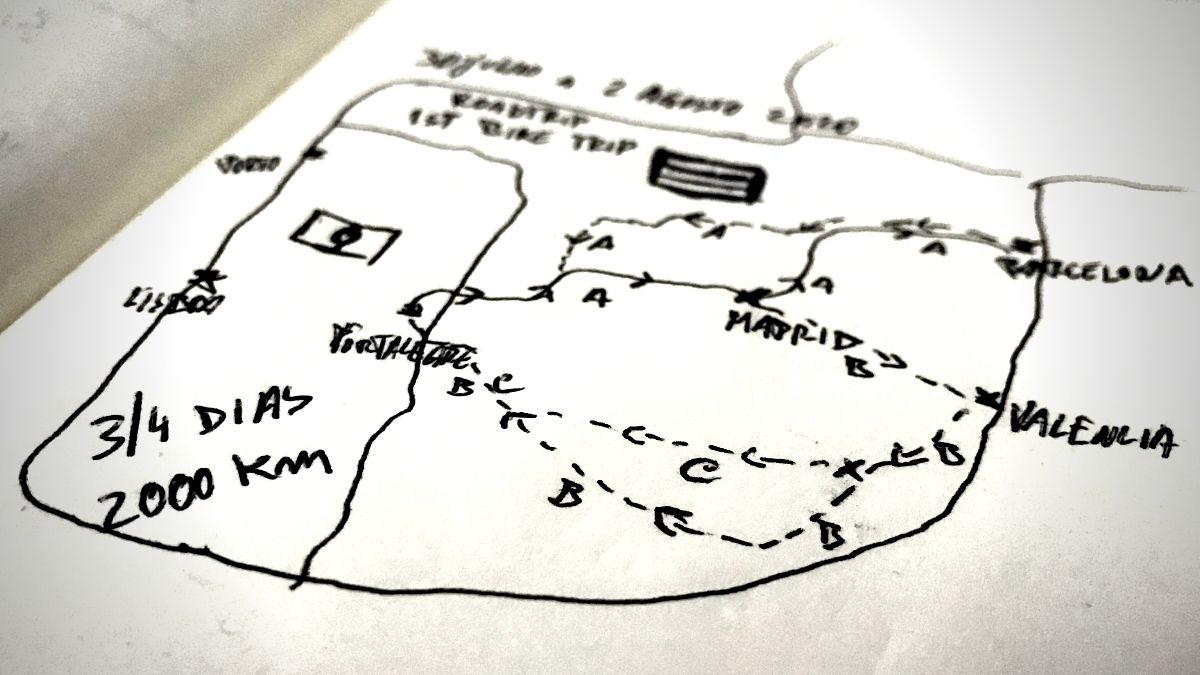 30 JULHO A 2 AGOSTO 2020
ROADTRIP
1ST BIKE TRIP
PORTO
LISBOA
PORTALEGRE
MADRID
BARCELONA
VALENCIA
A
A
A
A
A
B
B
B
B
B
C
C
3/4 DIAS
2000 KM